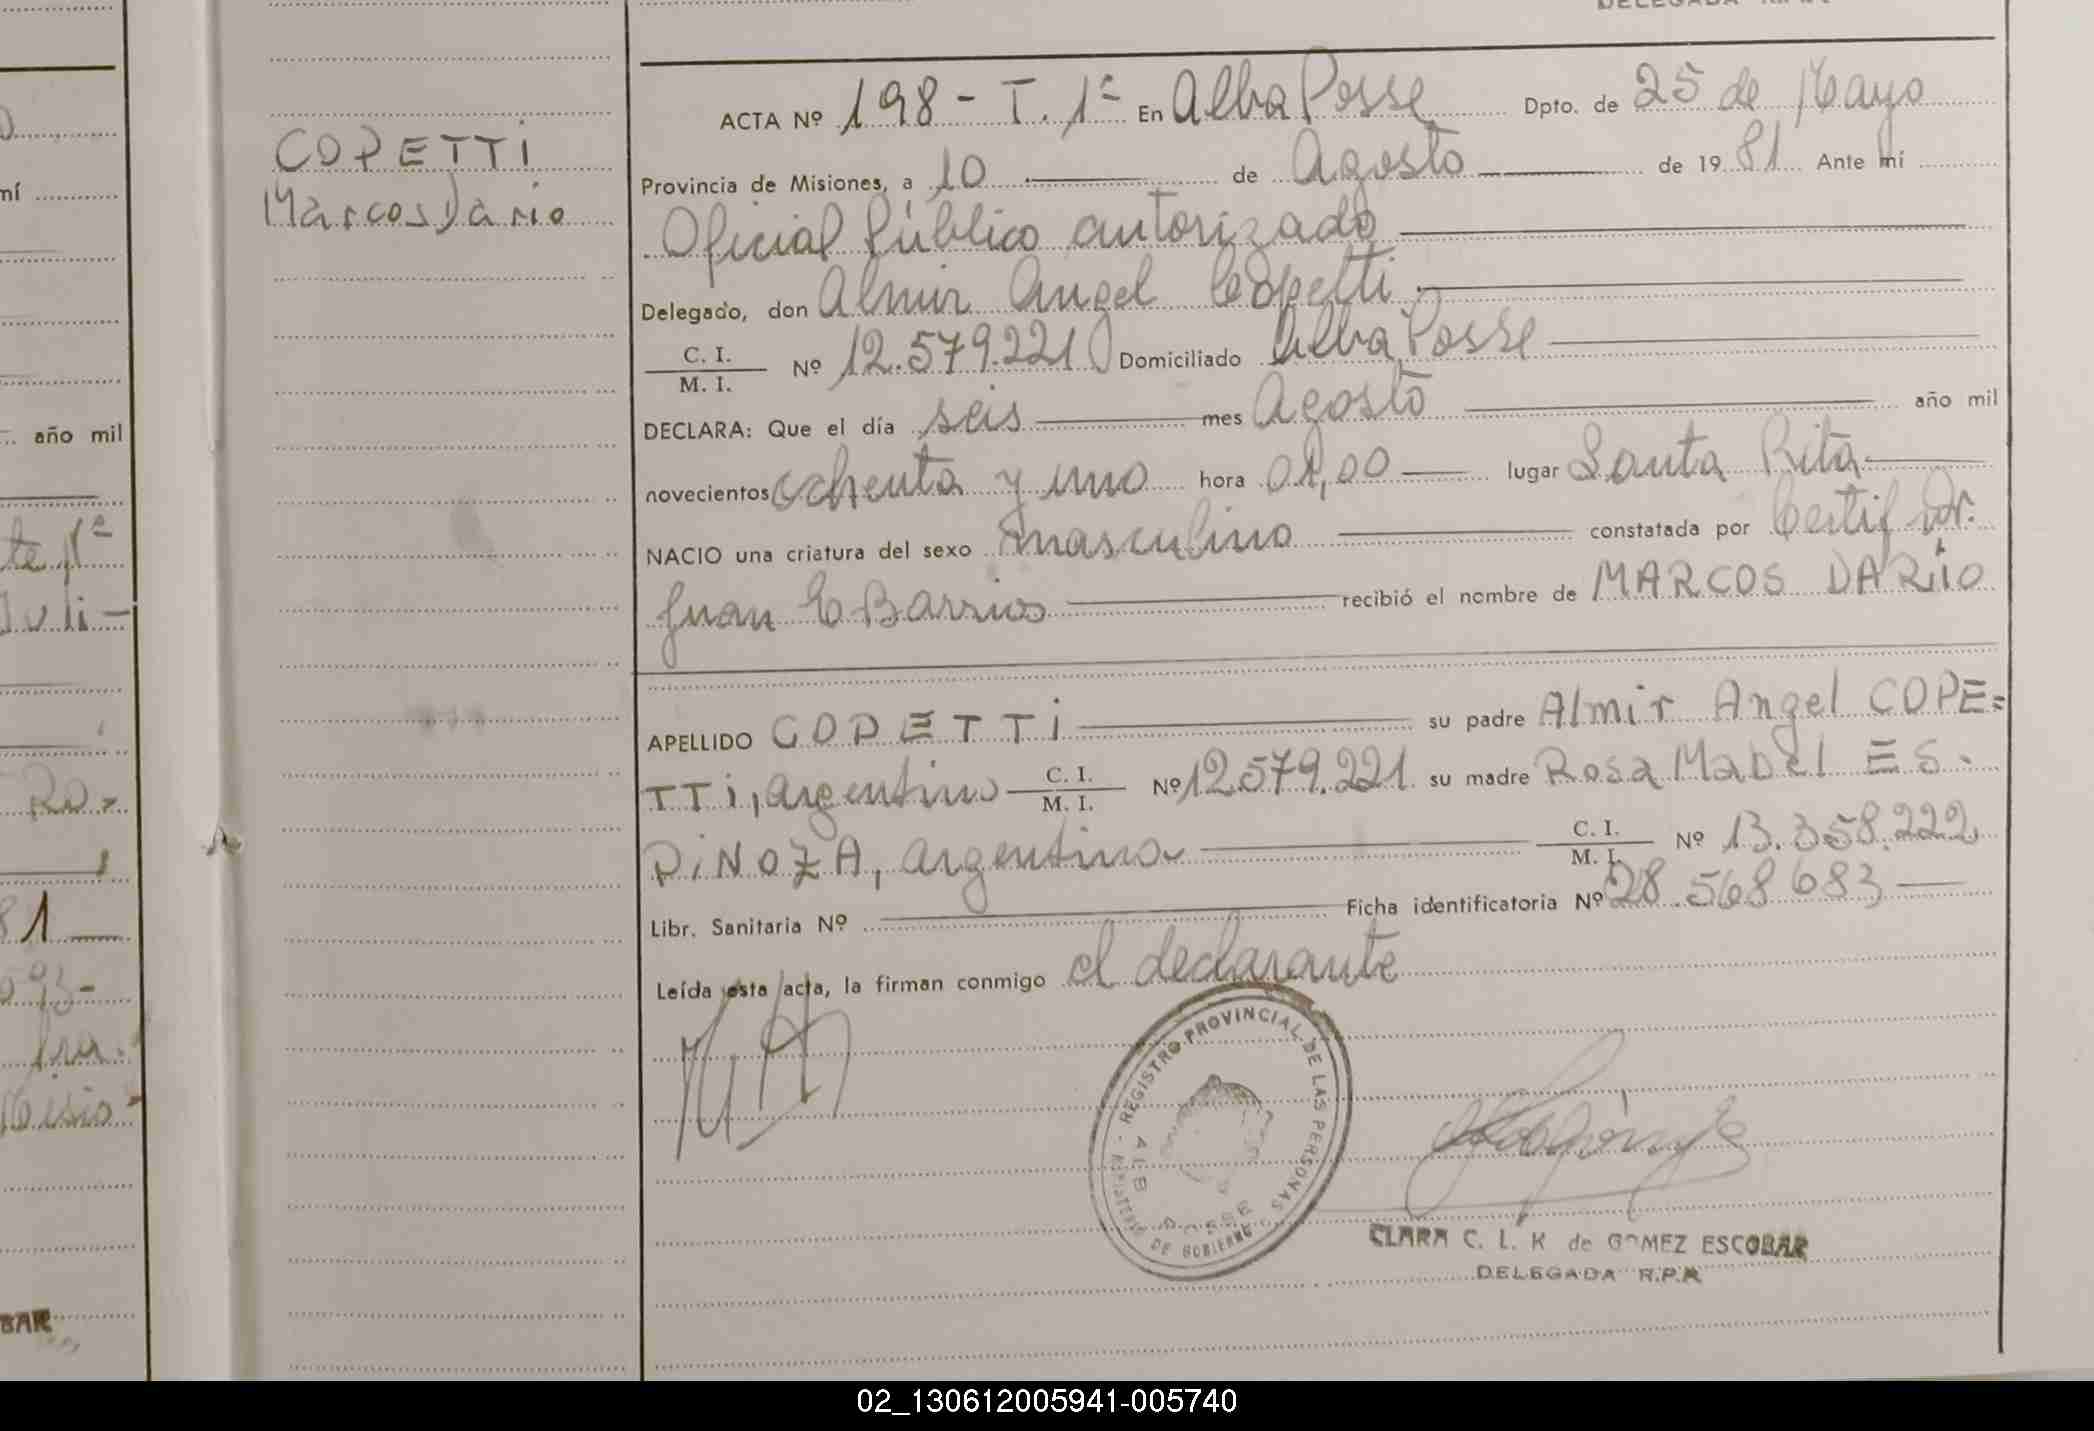 DELEGADA R.P.P.
ACTA Nº 198 - T. 1º En Alba Posse Dpto. de 25 de Mayo
Provincia de Misiones, a 10 de Agosto de 1981 Ante mí
Oficial Público autorizado
Delegado, don Almir Angel Copetti
C. I.
M. I. Nº 12.579.221 Domiciliado Alba Posse
DECLARA: Que el día seis mes Agosto año mil
novecientos ochenta y uno hora 01,00 lugar Santa Rita
NACIO una criatura del sexo masculino constatada por Certif Dr.
Juan C Barrios recibió el nombre de MARCOS DARIO
APELLIDO COPETTI su padre Almir Angel COPE=
TTi, argentino C. I. M. I. Nº 12.579.221. su madre Rosa Mabel ES-
PiNOZA, argentina C. I. M. I. Nº 13.358.222
Libr. Sanitaria Nº Ficha identificatoria Nº 28.568683
Leída esta acta, la firman conmigo el declarante
REGISTRO PROVINCIAL DE LAS PERSONAS - MINISTERIO DE GOBIERNO -
ALBA POSSE
CLARA C. L. K de GOMEZ ESCOBAR
DELEGADA R.P.P.
COPETTI
Marcos Dario
mí
año mil
Juli-
81
BAR
02_130612005941-005740